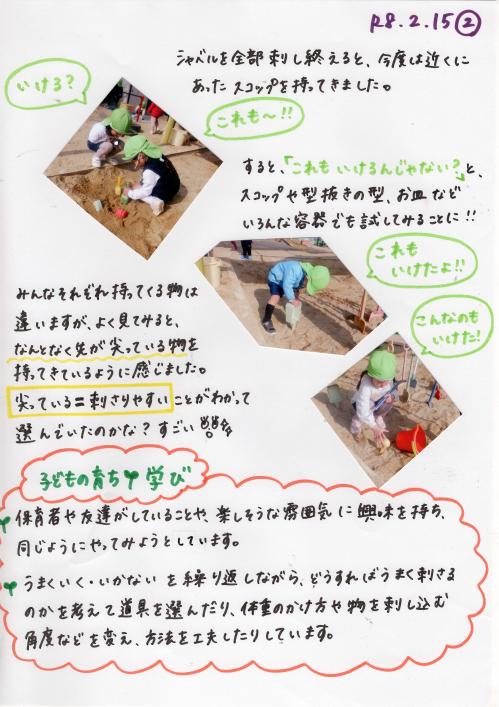 R8.2.15②
シャベルを全部刺し終えると、今度は近くに
あったスコップを持ってきました。
いける？
これも〜!!
すると、「これもいけるんじゃない？」と、
スコップや型抜きの型、お皿など
いろんな容器でも試してみることに!!
これも
いけたよ!!
こんなのも
いけた!
みんなそれぞれ持ってくる物は
違いますが、よく見てみると、
なんとなく先が尖っている物を
持ってきているように感じました。
尖っている=刺さりやすいことがわかって
選んでいたのかな？すごい!!
子どもの育ち 学び
保育者や友達がしていることや、楽しそうな雰囲気に興味を持ち、
同じようにやってみようとしています。
うまくいく・いかないを繰り返しながら、どうすればうまく刺さる
のかを考えて道具を選んだり、体重のかけ方や物を刺し込む
角度などを変え、方法を工夫したりしています。